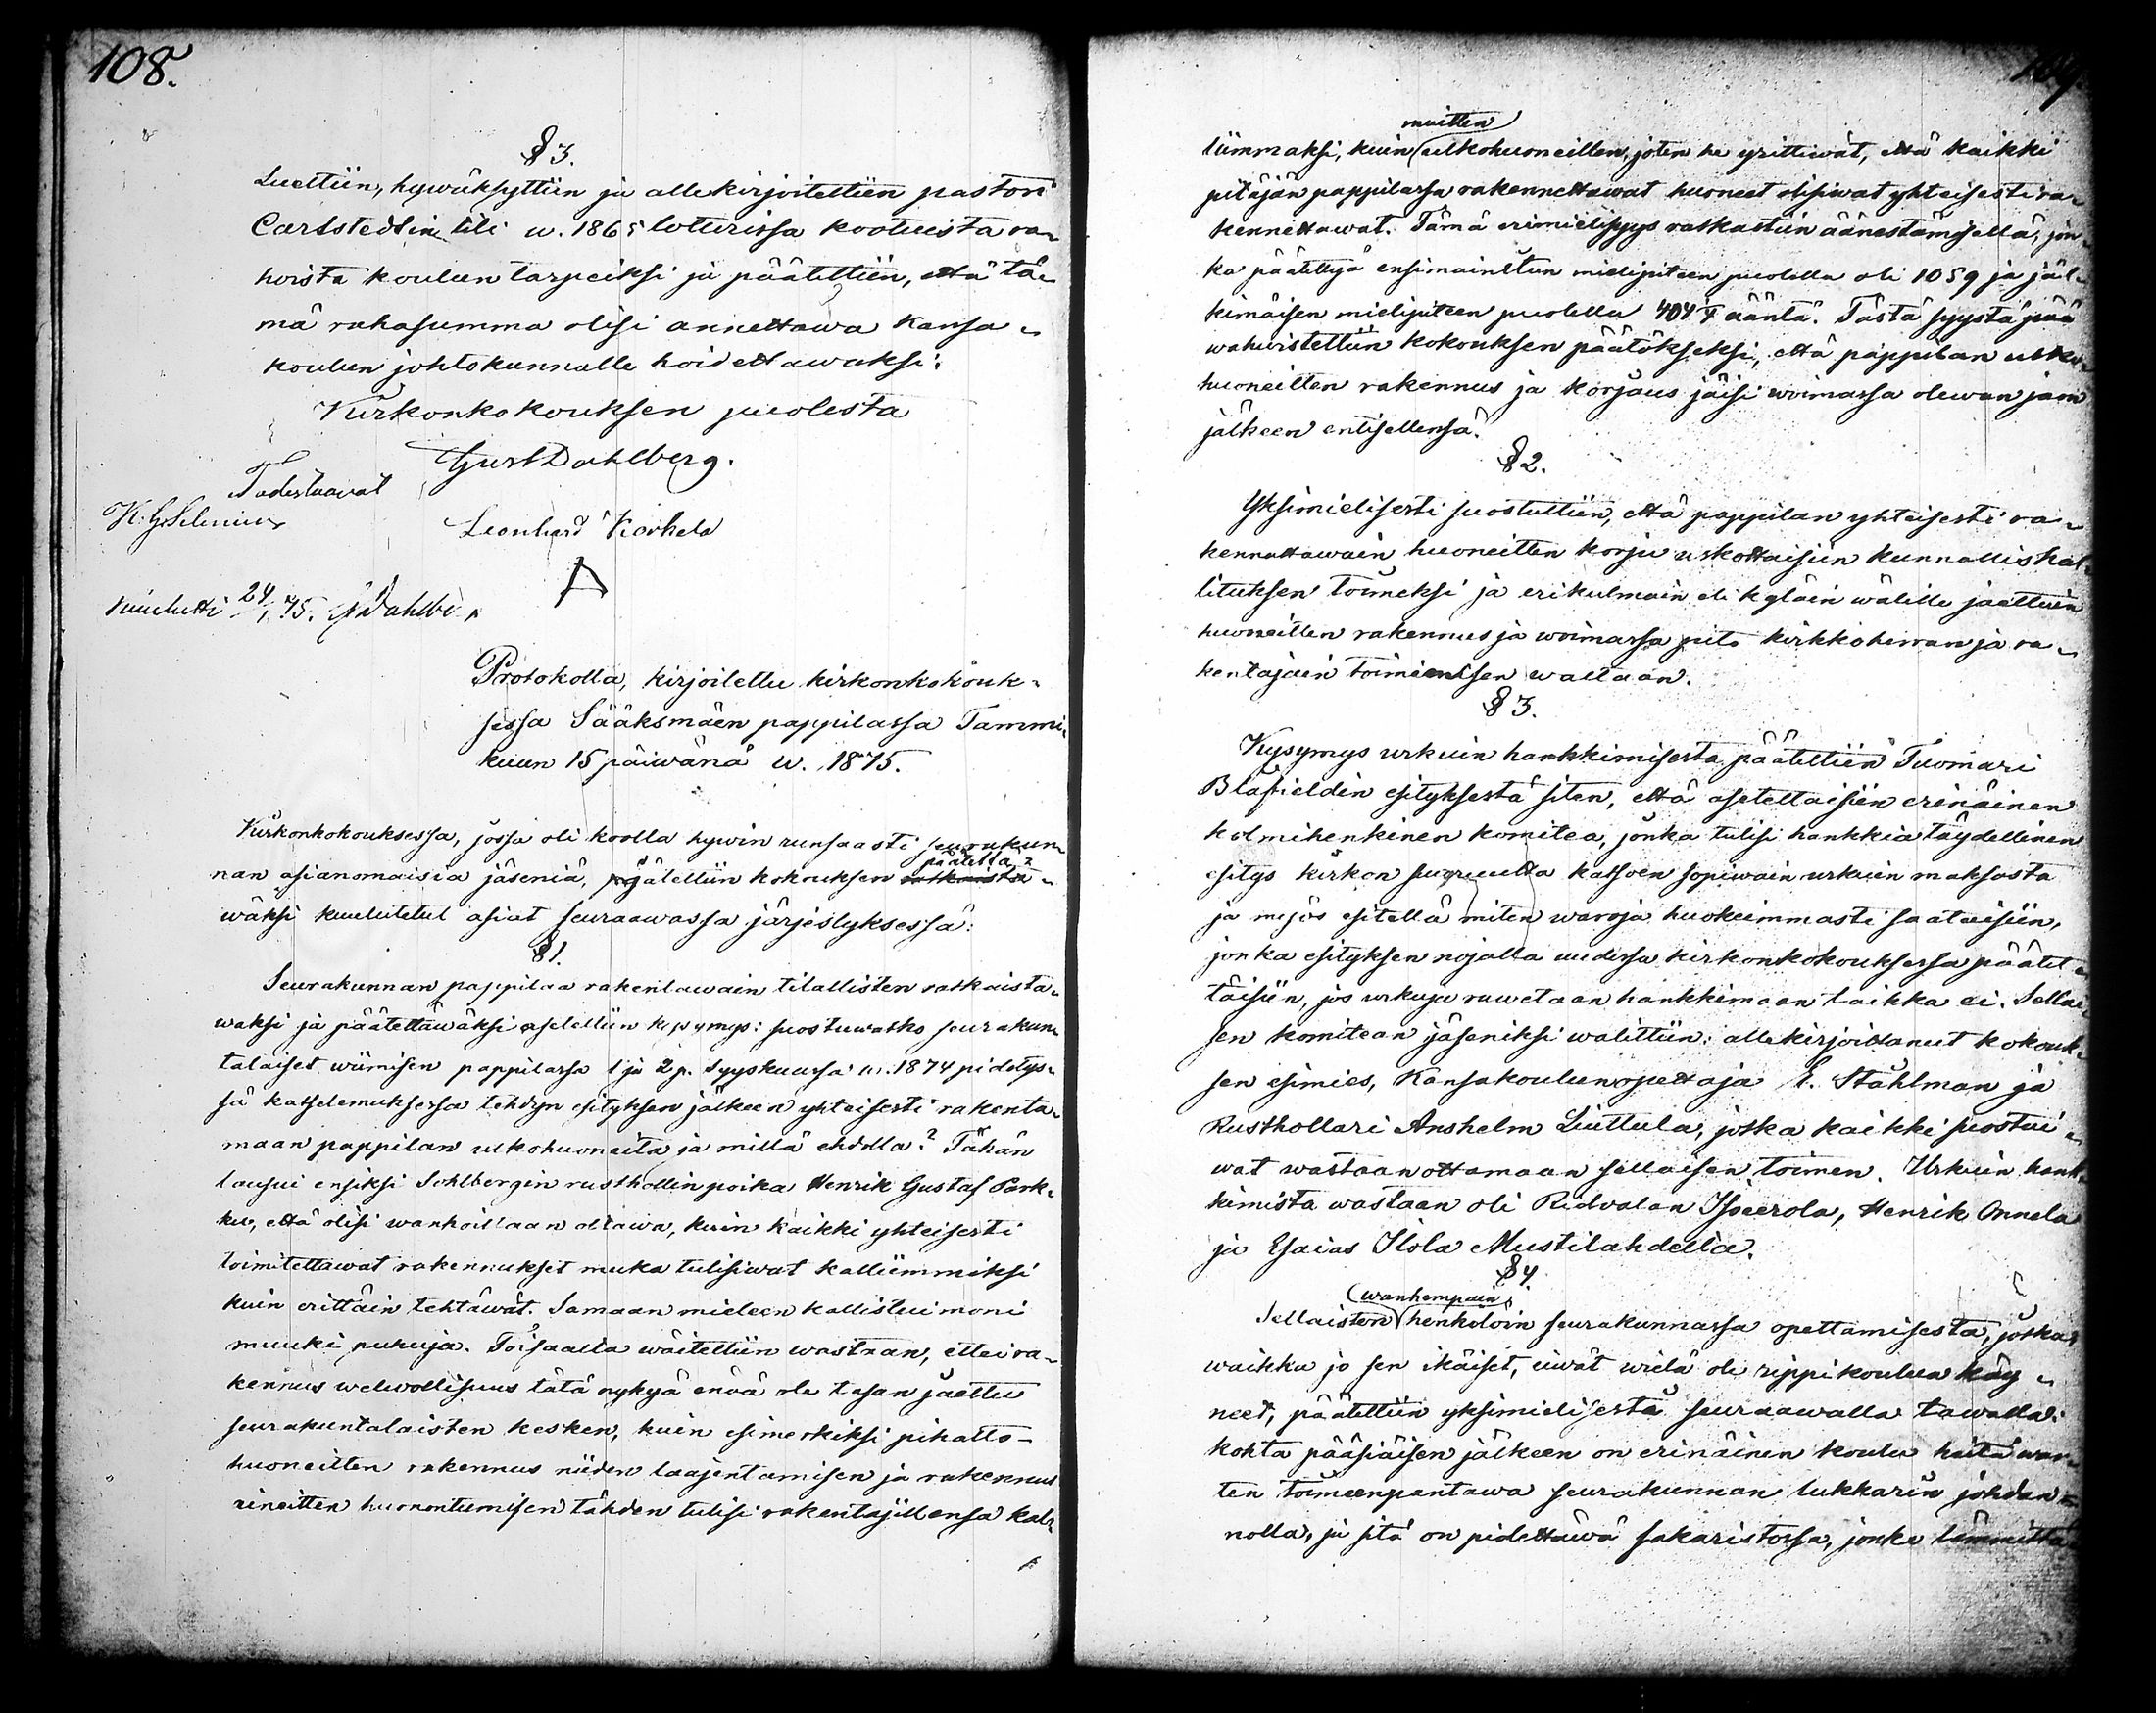 108.
§ 3.
Luettiin, hywäksyttiin ja allekirjoitettiin pastori
Carlstedtin tili w. 1865 lotterissa kootuista ra-
hoista koulun tarpeiksi ja päätettiin, että tä-
mä rahasumma olisi annettawa Kansa-
koulun johtokunnalle hoidettawaksi:
Kirkonkokouksen puolesta
Gust Dahlberg.
Todistaavat
K. G. Selenius
Leonhard Korhela
Kuulutti 24/1 75. G Dahlb
Protokolla, kirjoitettu kirkonkokouk-
sessa Sääksmäen pappilassa Tammi-
kuun 15 päiwänä w. 1875.
Kirkonkokouksessa, jossa oli koolla hywin runsaasti seurakun-
nan asianomaisia jäseniä, päätettiin kokouksen ratkaista- päätettä-
wäksi kuulutetut asiat seuraawassa järjestyksessä:
§ 1.
Seurakunnan pappilaa rakentawain tilallisten ratkaista-
waksi ja päätettäwäksi asetettiin kysymys: suostuwatko seurakun-
talaiset wiimisen pappilassa 1 ja 2 p. Syyskuussa w. 1874 pidetys-
sä katselemuksessa tehdyn esityksen jälkeen yhteisesti rakenta-
maan pappilan ulkohuoneita ja millä ehdolla? Tähän
lausui ensiksi Sohlbergin rusthollin poika Henrik Gustaf Perk-
ku, että olisi wanhoillaan oltawa, kuin kaikki yhteisesti
toimitettawat rakennukset muka tulisiwat kalliimmiksi
kuin erittäin tehtäwät. Samaan mieleen kallistui moni
muuki puhuja. Toisaalta wäitettiin wastaan, ettei ra-
kennus welwollisuus tätä nykyä enää ole tasan jaettu
seurakuntalaisten kesken, kuin esimerkiksi pihatto-
huoneitten rakennus niiden laajentamisen ja rakennus
aineitten huonontumisen tähden tulisi rakentajillensa kal-
109.
muitten
liimmaksi, kuin ulkohuoneitten, joten he yrittiwät, että kaikki
pitäjän pappilassa rakennettawat huoneet olisiwat yhteisesti ra-
kennettawat. Tämä erimielisyys ratkastiin äänestämisellä, jon-
ka päätettyä ensimainitun mielipiteen puolella oli 1059 ja jäl-
kimäisen mielipiteen puolella 404 ääntä. Tästä syystä
wahwistettiin kokouksen päätökseksi, että pappilan ulko-
huoneitten rakennus ja korjaus jäisi woimassa olewan jaon
jälkeen entisellensä.
§ 2.
Yksimielisesti suostuttiin, että pappilan yhteisesti ra-
kennattawain huoneitten korju uskottaisiin kunnallishal-
lituksen toimeksi ja erikulmain eli kyläin wälille jaettuin
huoneitten rakennus ja woimassa pito kirkkoherran ja ra-
kentajain toimimisen waltaan.
§ 3.
Kysymys urkuin hankkimisesta päätettiin Tuomari
Blåfieldin esityksestä siten, että asetettaisiin erinäinen
kolmihenkinen komitea, jonka tulisi hankkia täydellinen
esitys kirkon suuruutta katsoen sopiwain urkuin maksosta
ja myös esitellä miten waroja huokeimmasti saataisiin,
jonka esityksen nojalla uudessa kirkonkokouksessa päätet-
täisiin, jos urkuja ruwetaan hankkimaan taikka ei. Sellai-
sen komitean jäseniksi walittiin: allekirjoittanut kokouk-
sen esimies, Kansakoulunopettaja E. Ståhlman ja
Rusthollari Anshelm Liuttula, jotka kaikki suostui-
wat wastaanottamaan sellaisen toimen. Urkuin hank-
kimista wastaan oli Ridvalan Iso eerola, Henrik Onnela
ja Esaias Ilola Mustilahdella.
§ 4.
wanhempain
Sellaisten henkiloin seurakunnassa opettamisesta, jotka,
waikka jo sen ikäiset, eiwät wielä ole rippikoulua käy-
neet, päätettiin yksimielisestä seuraawalla tawalla:
kohta pääsiäisen jälkeen on erinäinen koulu heitä war-
ten toimeenpantawa seurakunnan lukkarin johdan-
nolla, ja sitä on pidettäwä sakaristossa, jonka lämmittä